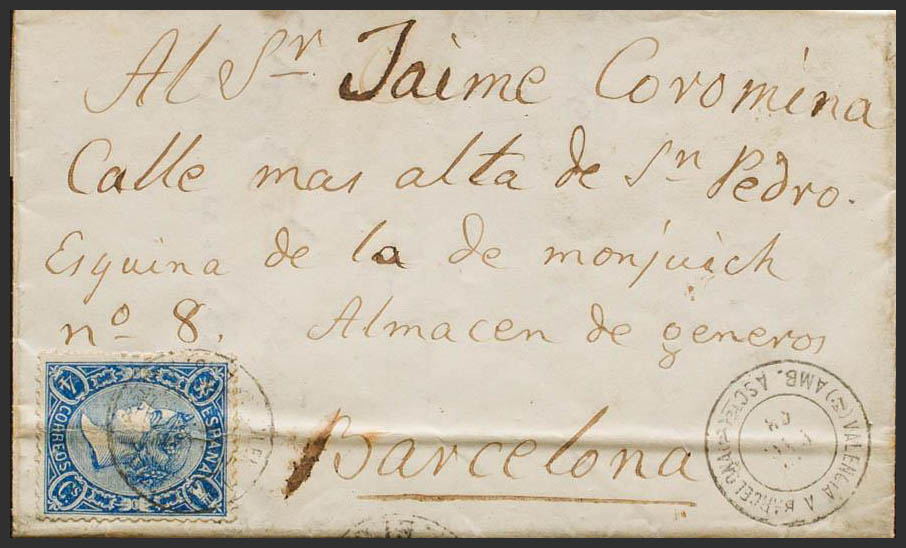 Al Sr. Jaime Coromina
Calle mas alta de Sn Pedro.
Esquina de la de monjuich
nº 8. Almacen de generos
Barcelona
CORREOS
ESPAÑA
4
VALENCIA A BARCELONA
AMB. ASC.